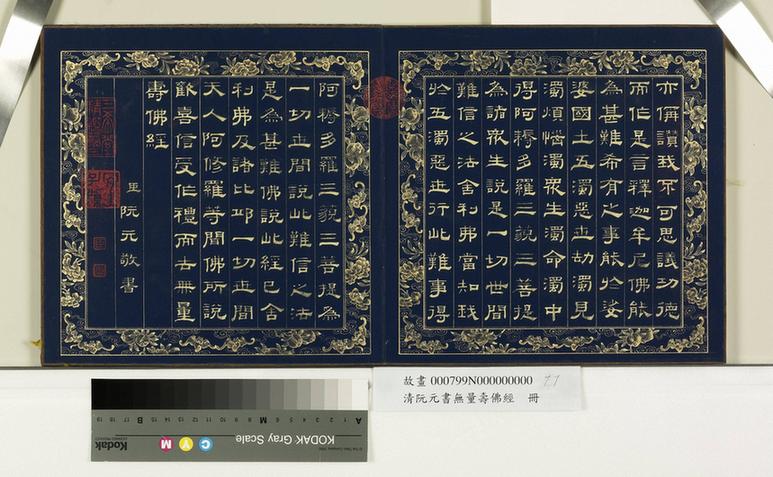 亦偁讚我不可思議功德
而作是言釋迦牟尼佛能
為甚難希有之事能於娑
婆國土五濁惡世劫濁見
濁煩惱濁眾生濁命濁中
得阿耨多羅三藐三菩提
為諸眾生說是一切世間
難信之法舍利弗當知我
於五濁惡世行此難事得
阿耨多羅三藐三菩提為
一切世間說此難信之法
是為甚難佛說此經已舍
利弗及諸比邱一切世間
天人阿修羅等聞佛所說
歡喜信受作禮而去無量
壽佛經
臣阮元敬書
故畫 000799N000000000
清阮元書無量壽佛經 冊
A 1 2 3 4 5 6 M 8 9 10 11 12 13 14 15 B 17 18 19
KODAK Gray Scale
C Y M
Kodak